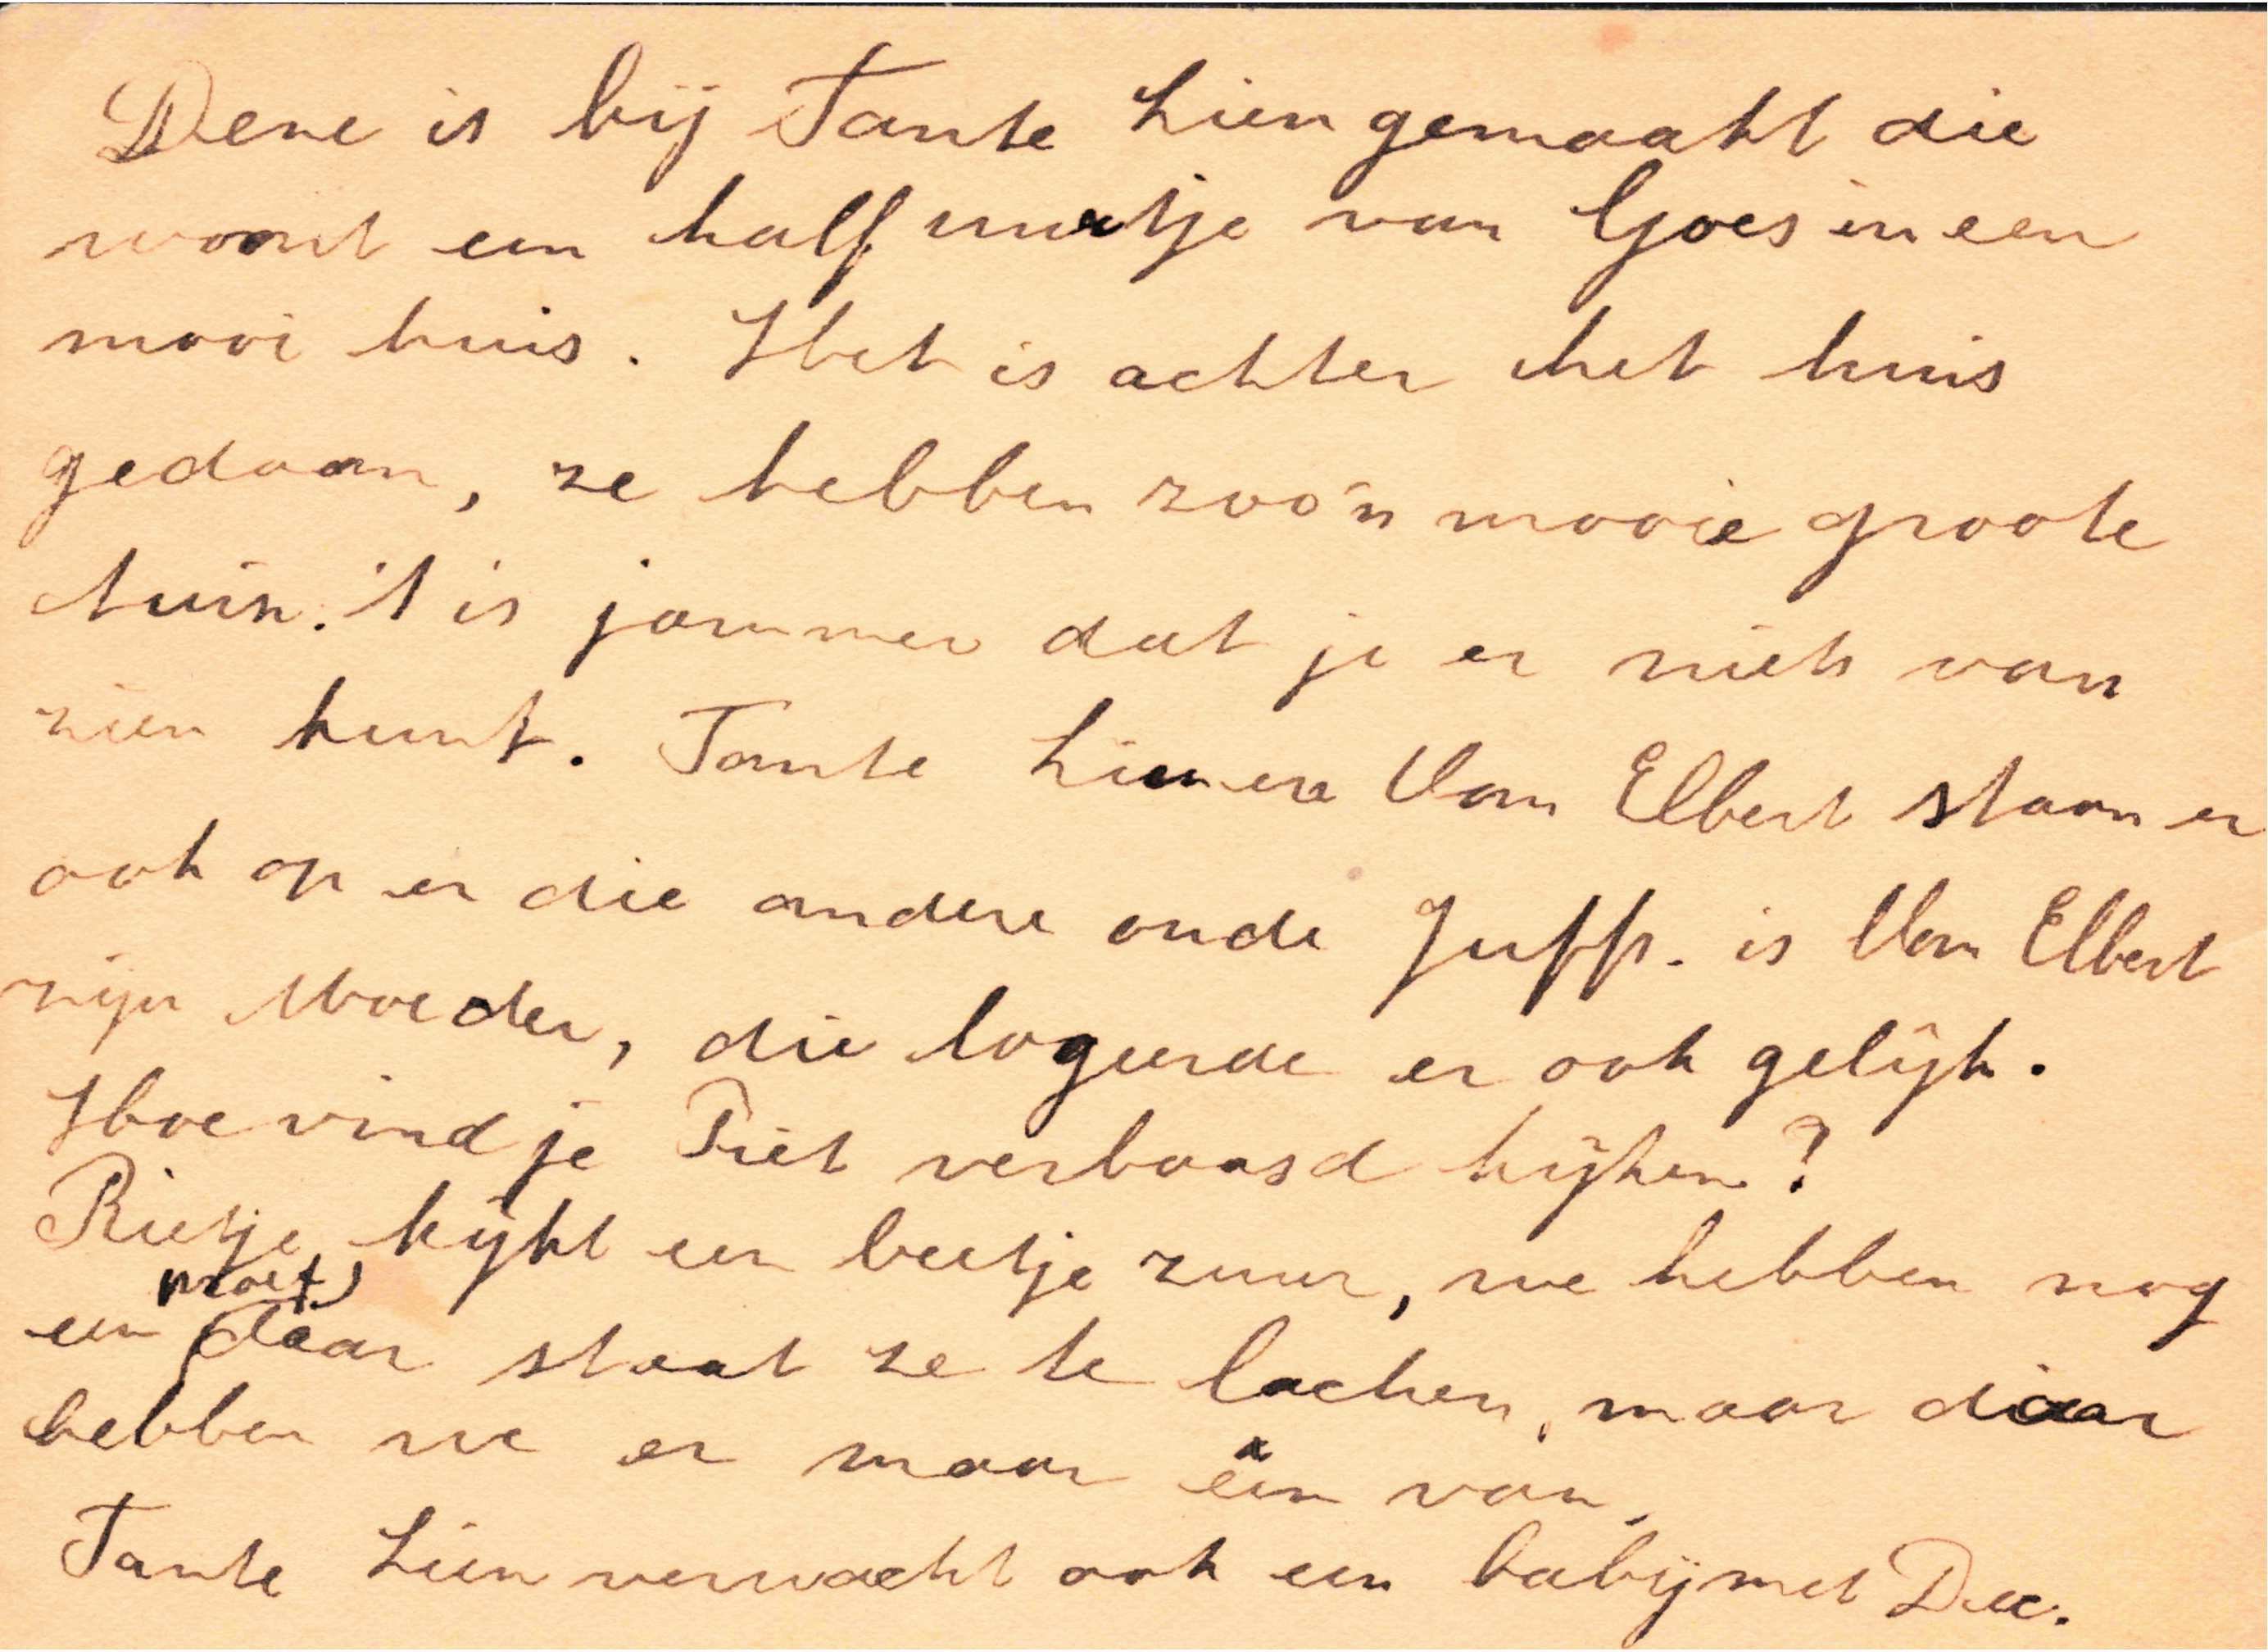 Deze is bij Tante Lien gemaakt die
woont een half uurtje van Goes in een
mooi huis. Het is achter het huis
gedaan, ze hebben zoo'n mooie groote
tuin. 't is jammer dat je er niets van
zien kunt. Tante Lien en Oom Elbert staan er
ook op en die andere oude Juffr. is Oom Elbert
zijn Moeder, die logeerde er ook gelijk.
Hoe vind je Piet verbaasd kijken?
Rietje kijkt een beetje zuur, we hebben nog
moet
een daar staat ze te lachen, maar daar
hebben we er maar één van.
Tante Lien verwacht ook een babij met Dec.